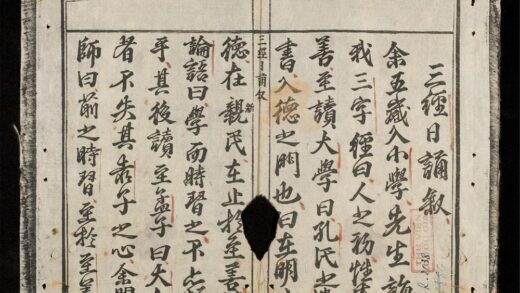 三經日誦敘
余五歲入小學先生
我三字經曰人之初性
善至讀大學曰孔氏之
書入德之門也曰在明
三經日誦敘
德在親民在止於至善
新
論語曰學而時習之不亦
乎其後讀至孟子曰大
者不失其赤子之心余問
師曰前之時習至於至善